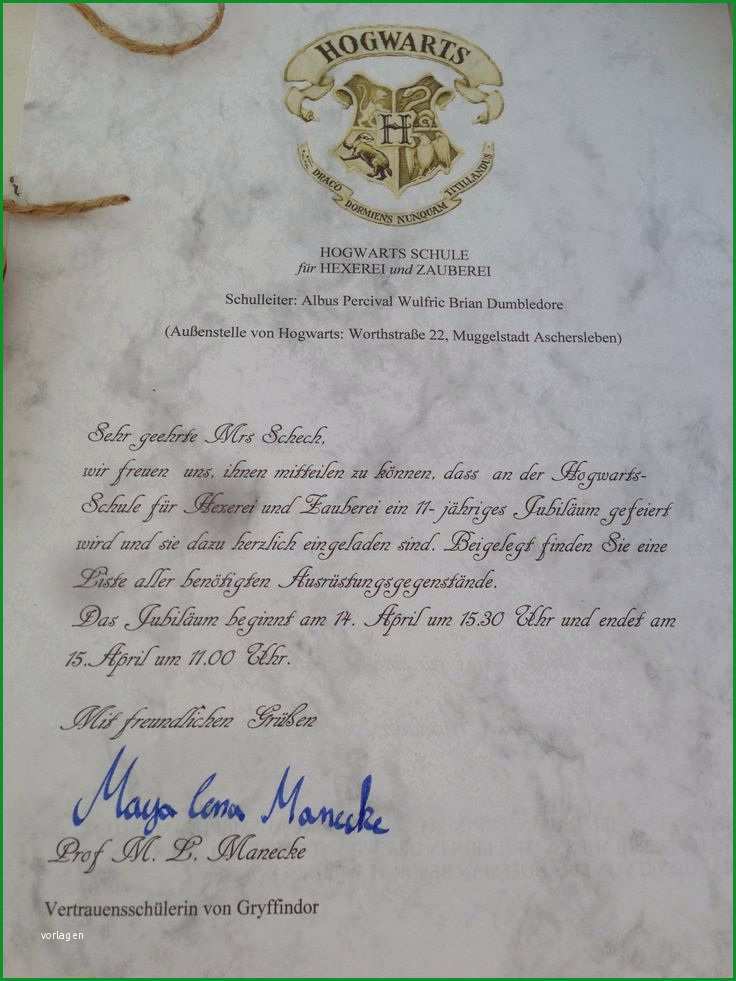 HOGWARTS
H
DRACO DORMIENS NUNQUAM TITILLANDUS
HOGWARTS SCHULE
für HEXEREI und ZAUBEREI
Schulleiter: Albus Percival Wulfric Brian Dumbledore
(Außenstelle von Hogwarts: Worthstraße 22, Muggelstadt Aschersleben)
Sehr geehrte Mrs Schech,
wir freuen uns, ihnen mitteilen zu können, dass an der Hogwarts-
Schule für Hexerei und Zauberei ein 11- jähriges Jubiläum gefeiert
wird und sie dazu herzlich eingeladen sind. Beigelegt finden Sie eine
Liste aller benötigten Ausrüstungsgegenstände.
Das Jubiläum beginnt am 14. April um 15.30 Uhr und endet am
15.April um 11.00 Uhr.
Mit freundlichen Grüßen
Maya Lena Manecke
Prof M. L. Manecke
Vertrauensschülerin von Gryffindor
vorlagen